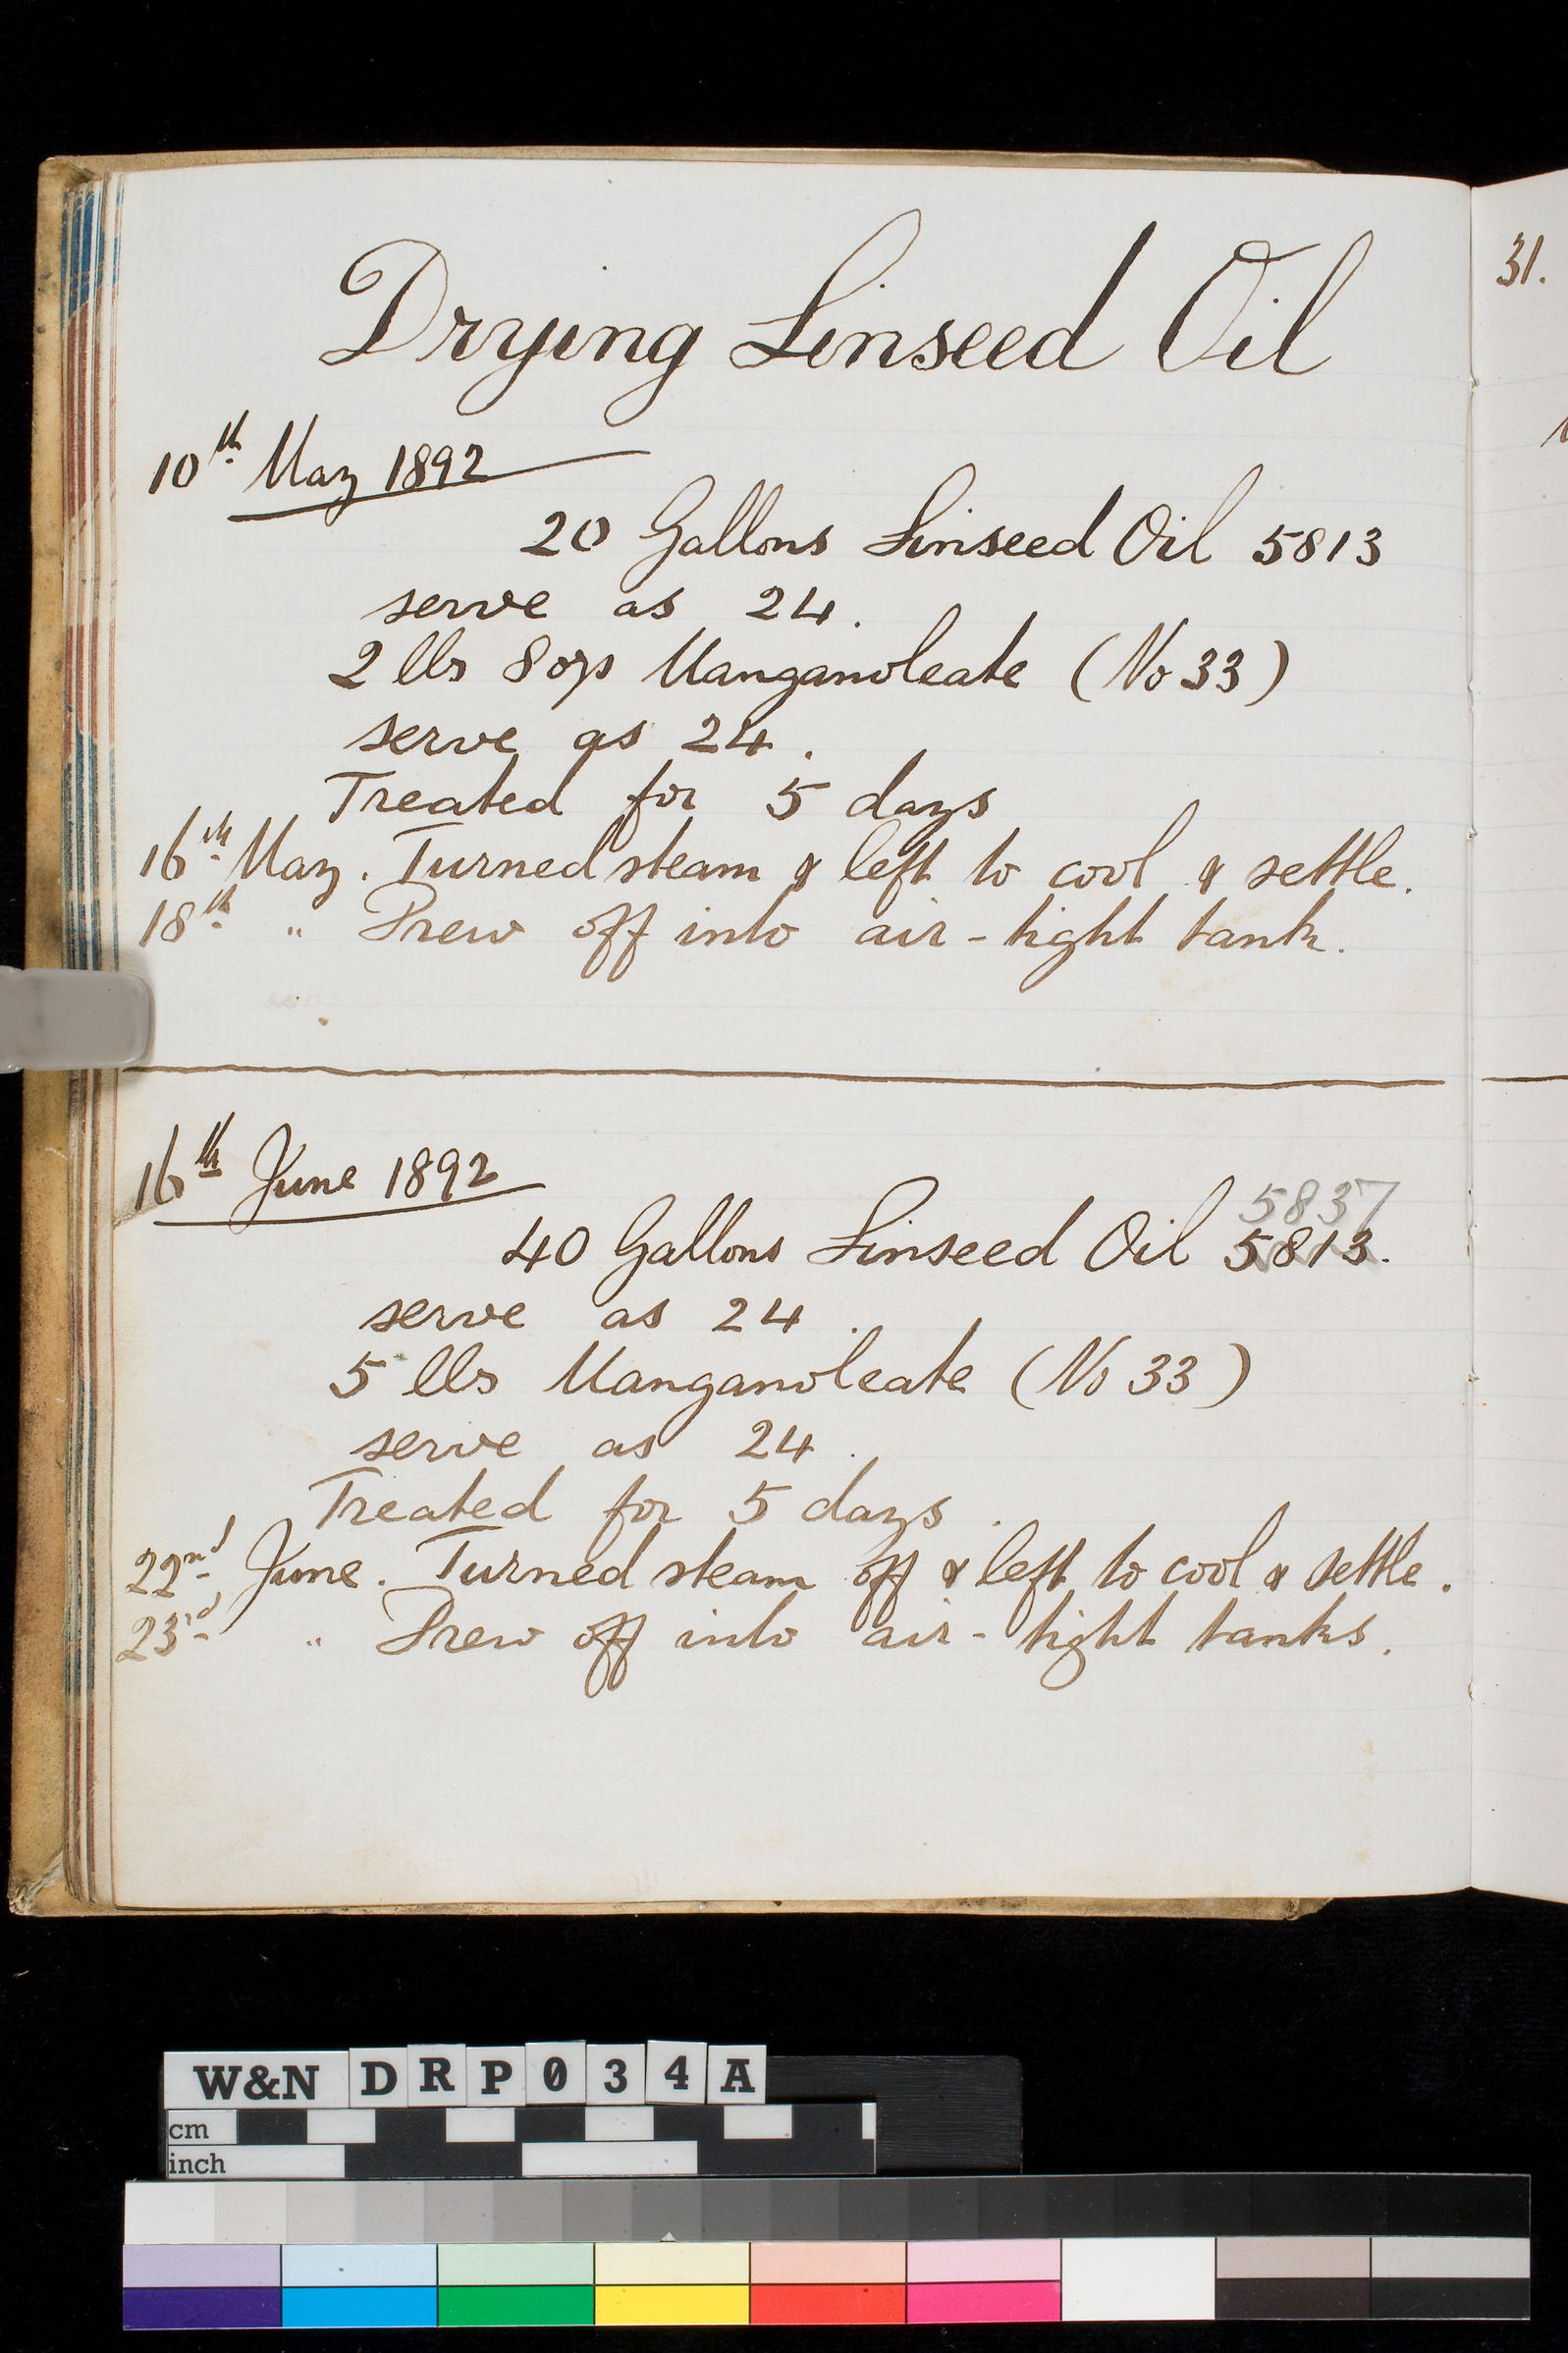 Drying Linseed Oil
31.
10th May 1892
20 Gallons Linseed Oil 5813
serve as 24.
2 lbs 8 ozs Manganoleate (No 33)
serve as 24.
Treated for 5 days
16th May. Turned steam & left to cool & settle.
18th " Drew off into air-tight tank.
16th June 1892
5837
40 Gallons Linseed Oil 5813.
serve as 24.
5 lbs Manganoleate (No 33)
serve as 24.
Treated for 5 days.
22nd June. Turned steam off & left to cool & settle.
23rd " Drew off into air-tight tanks.
W&N DRP034A
cm
inch